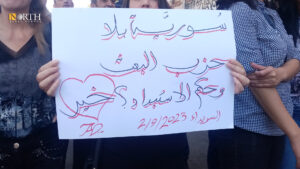 NORTH
سورية بلا
حزب البعث
وحكم الاستبداد؟ خير
السويداء 2/9/2023